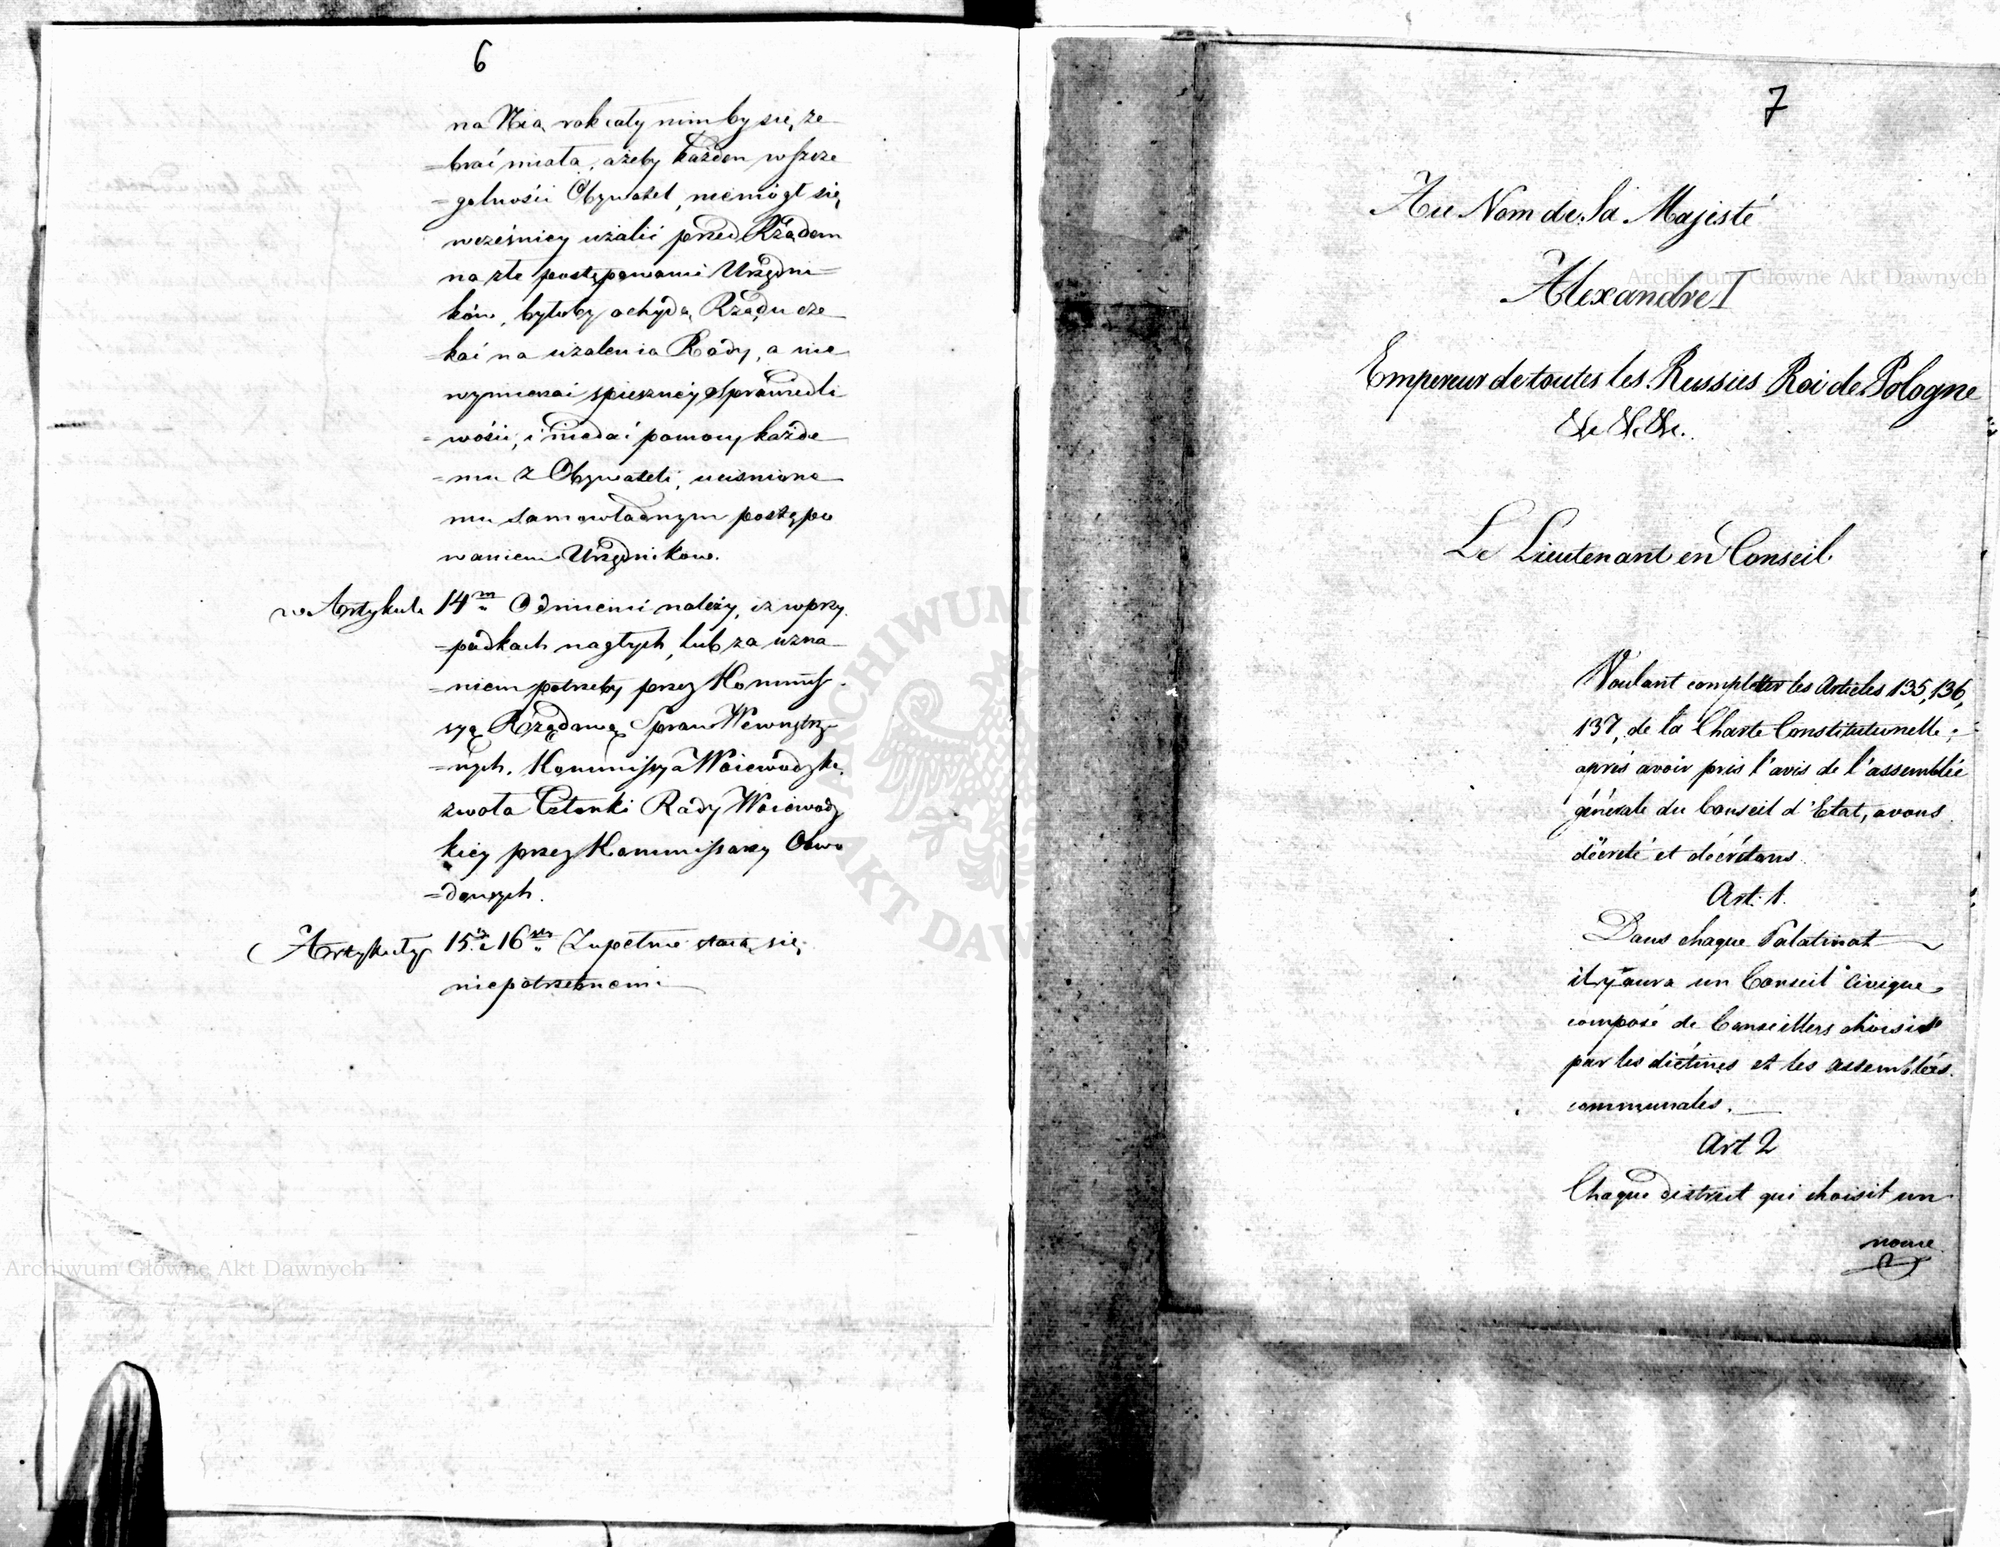 6
na Nią, rok cały nimby się, ze
=brać miała, ażeby każden wszcze
=gulności Obywatel, niemógł się,
wcześnicy użalić przed Rządem
na złe postępowanie Urzędni=
ków, byłoby ochydą, Rządu cze
=kać na użalenia Rady, a nie
wymierzać spieszney Sprawiedli
=wości, i niedać pomocy każde
=mu z Obywateli, uciśnione
mu samowładnym postępo
waniem Urzędników.
w Artykule 14m Odmienić należy, iż w przy
=padkach nagłych, lub za uzna
=niem potrzeby przez Kommis
syą Rządową Spraw Wewnętrz
=nych, Kommissya Woiewodzka
zwoła Członki Rady Woiewodz
kiey przez Kommissarzy Obwo
=dowych.
Artykuły 15 i 16 Zupełnie staią się,
niepotrzebnemi
7
Au Nom de Sa Majesté
Alexandre I
Empereur de toutes les Russies Roi de Pologne
&c &c &c.
Le Lieutenant en Conseil
Voulant completter les Articles 135, 136,
137, de la Charte Constitutionelle;
après avoir pris l'avis de l'assemblée
générale du Conseil d'Etat, avons
décreté et décrétons
Art: 1.
Dans chaque Palatinat
il y aura un Conseil Civique
composé de Conseillers choisis
par les diétines et les assemblées
communales.
Art 2
Chaque district qui choisit un
nonce
Archiwum Główne Akt Dawnych
Archiwum Główne Akt Dawnych
ARCHIWUM
AKT DAW